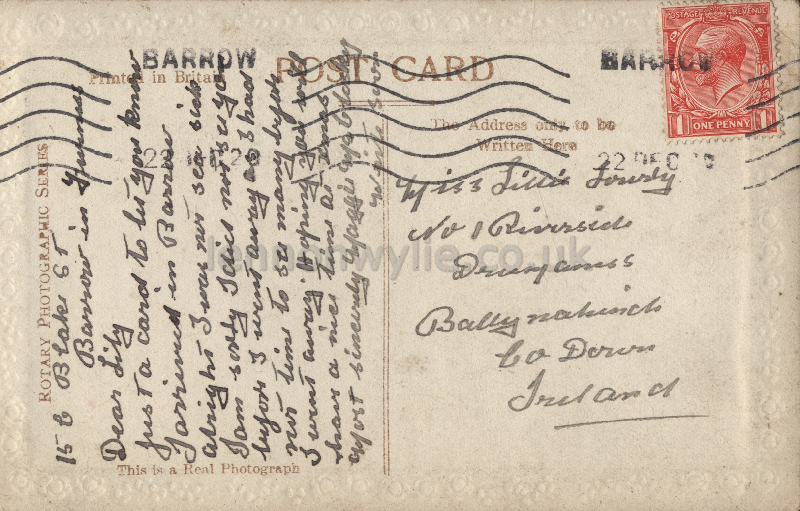 BARROW
POST CARD
BARROW
Printed in Britain
POSTAGE REVENUE
1 ONE PENNY 1
The Address only to be
Written Here
22 DEC 20
22 DEC
ROTARY PHOTOGRAPHIC SERIES
15 Blake St
Barrow in Furness
Dear Lily
Just a card to let you know
I arrived in Barrow
alright I was not sea sick
I am sorry I did not see you
before I went away as I had
not time to see many before
I went away Hoping you will
have a nice time at Xmas
Most sincerely Maggie
write soon
This is a Real Photograph
Miss Lillie Lowry
No 1 Riverside
Drumaness
Ballynahinch
Co Down
Ireland
lennonwylie.co.uk